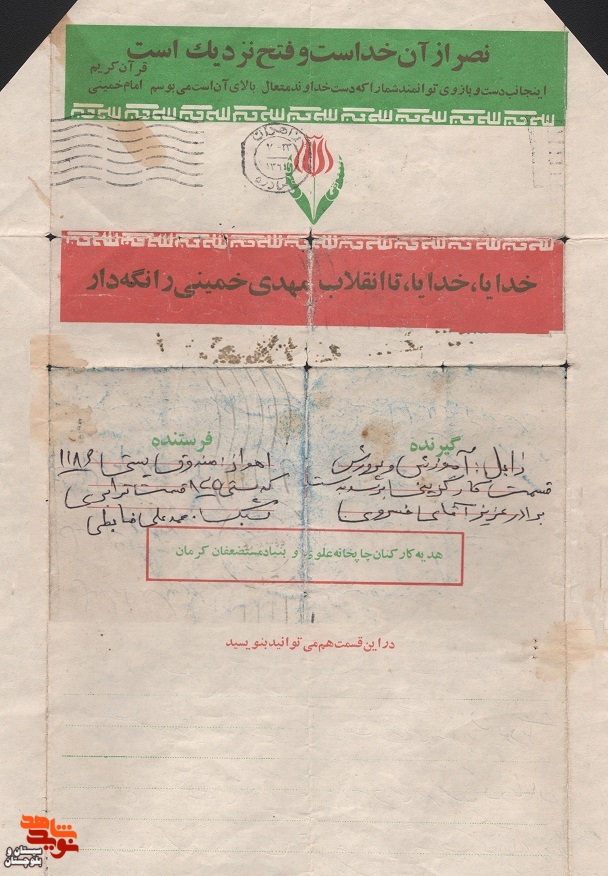 نصر از آن خداست و فتح نزدیك است
قرآن کریم
اینجانب دست و بازوی توانمند شما را که دست خداوند متعال بالای آن است می بوسم امام خمینی
زاهدان
خدایا، خدایا، تا انقلاب مهدی خمینی را نگه دار
گیرنده
زابل: آموزش و پرورش
قسمت کارگزینی برسد بدست
برادر عزیز آقای خسروی
فرستنده
اهواز: صندوق پستی ۱۱۸۶
کد پستی
محمد علی ضابطی
هدیه کارکنان چاپخانه علوی و بنیاد مستضعفان کرمان
در این قسمت هم می توانید بنویسید
نوید شاهد
سیستان و
بلوچستان